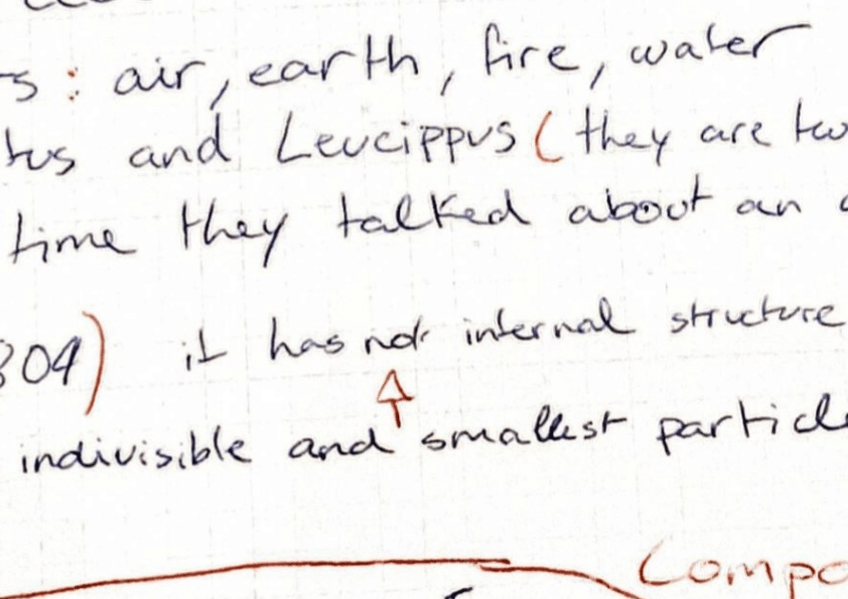 s : air, earth, fire, water
tus and Leucippus ( they are tw
time they talked about an
804) it has not internal structure
indivisible and smallest particle
Compo